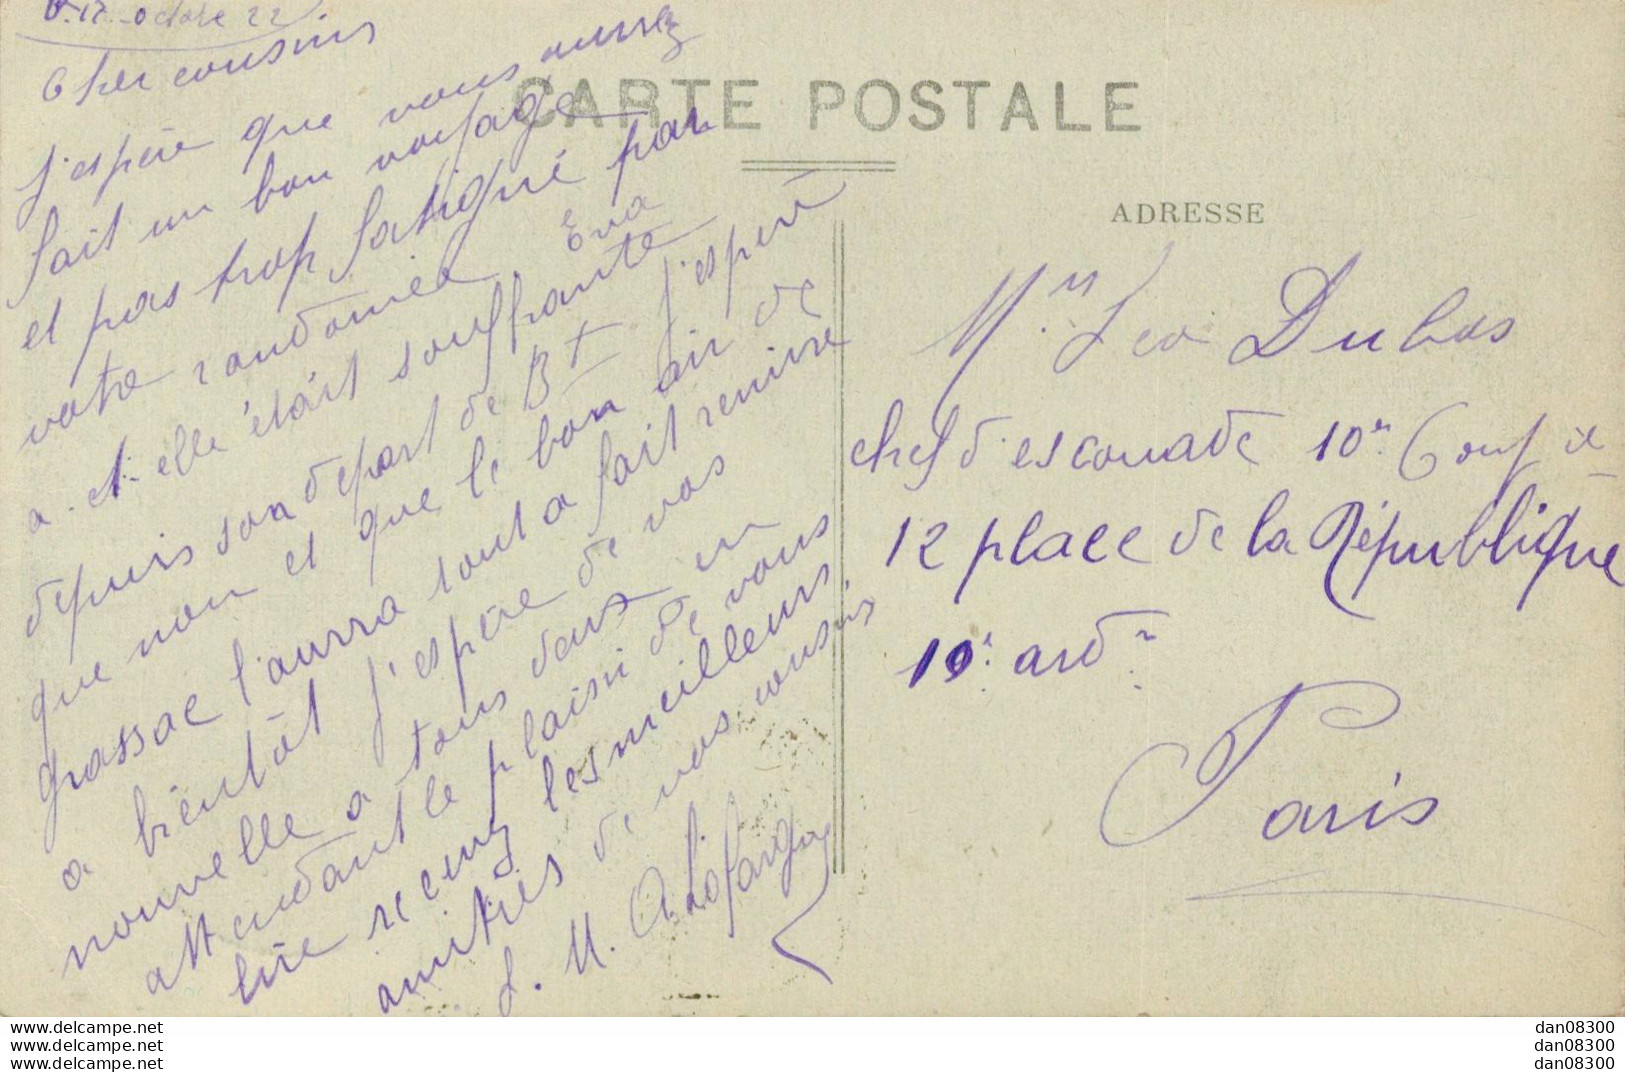 12 octobre 22
Cher cousins
J'espère que vous aurrez
fait un bon voyage
et pas trop fatigué par
votre randonnée Eva
a-t-elle était souffrante
depuis son départ de Bt J'espère
que non et que le bon air de
grassac l'aurra tout a fait remise
a bientôt J'espère de vos
nouvelle a tous deux en
attendant le plaisir de vous
lire recevez les meilleurs
amitiés de vos cousins
J. M. A. Lafargue
CARTE POSTALE
ADRESSE
Mr. Leo Dubos
chef d'escouade 10e Comp ie
12 place de la République
10e ardr
Paris
www.delcampe.net
www.delcampe.net
www.delcampe.net
dan08300
dan08300
dan08300